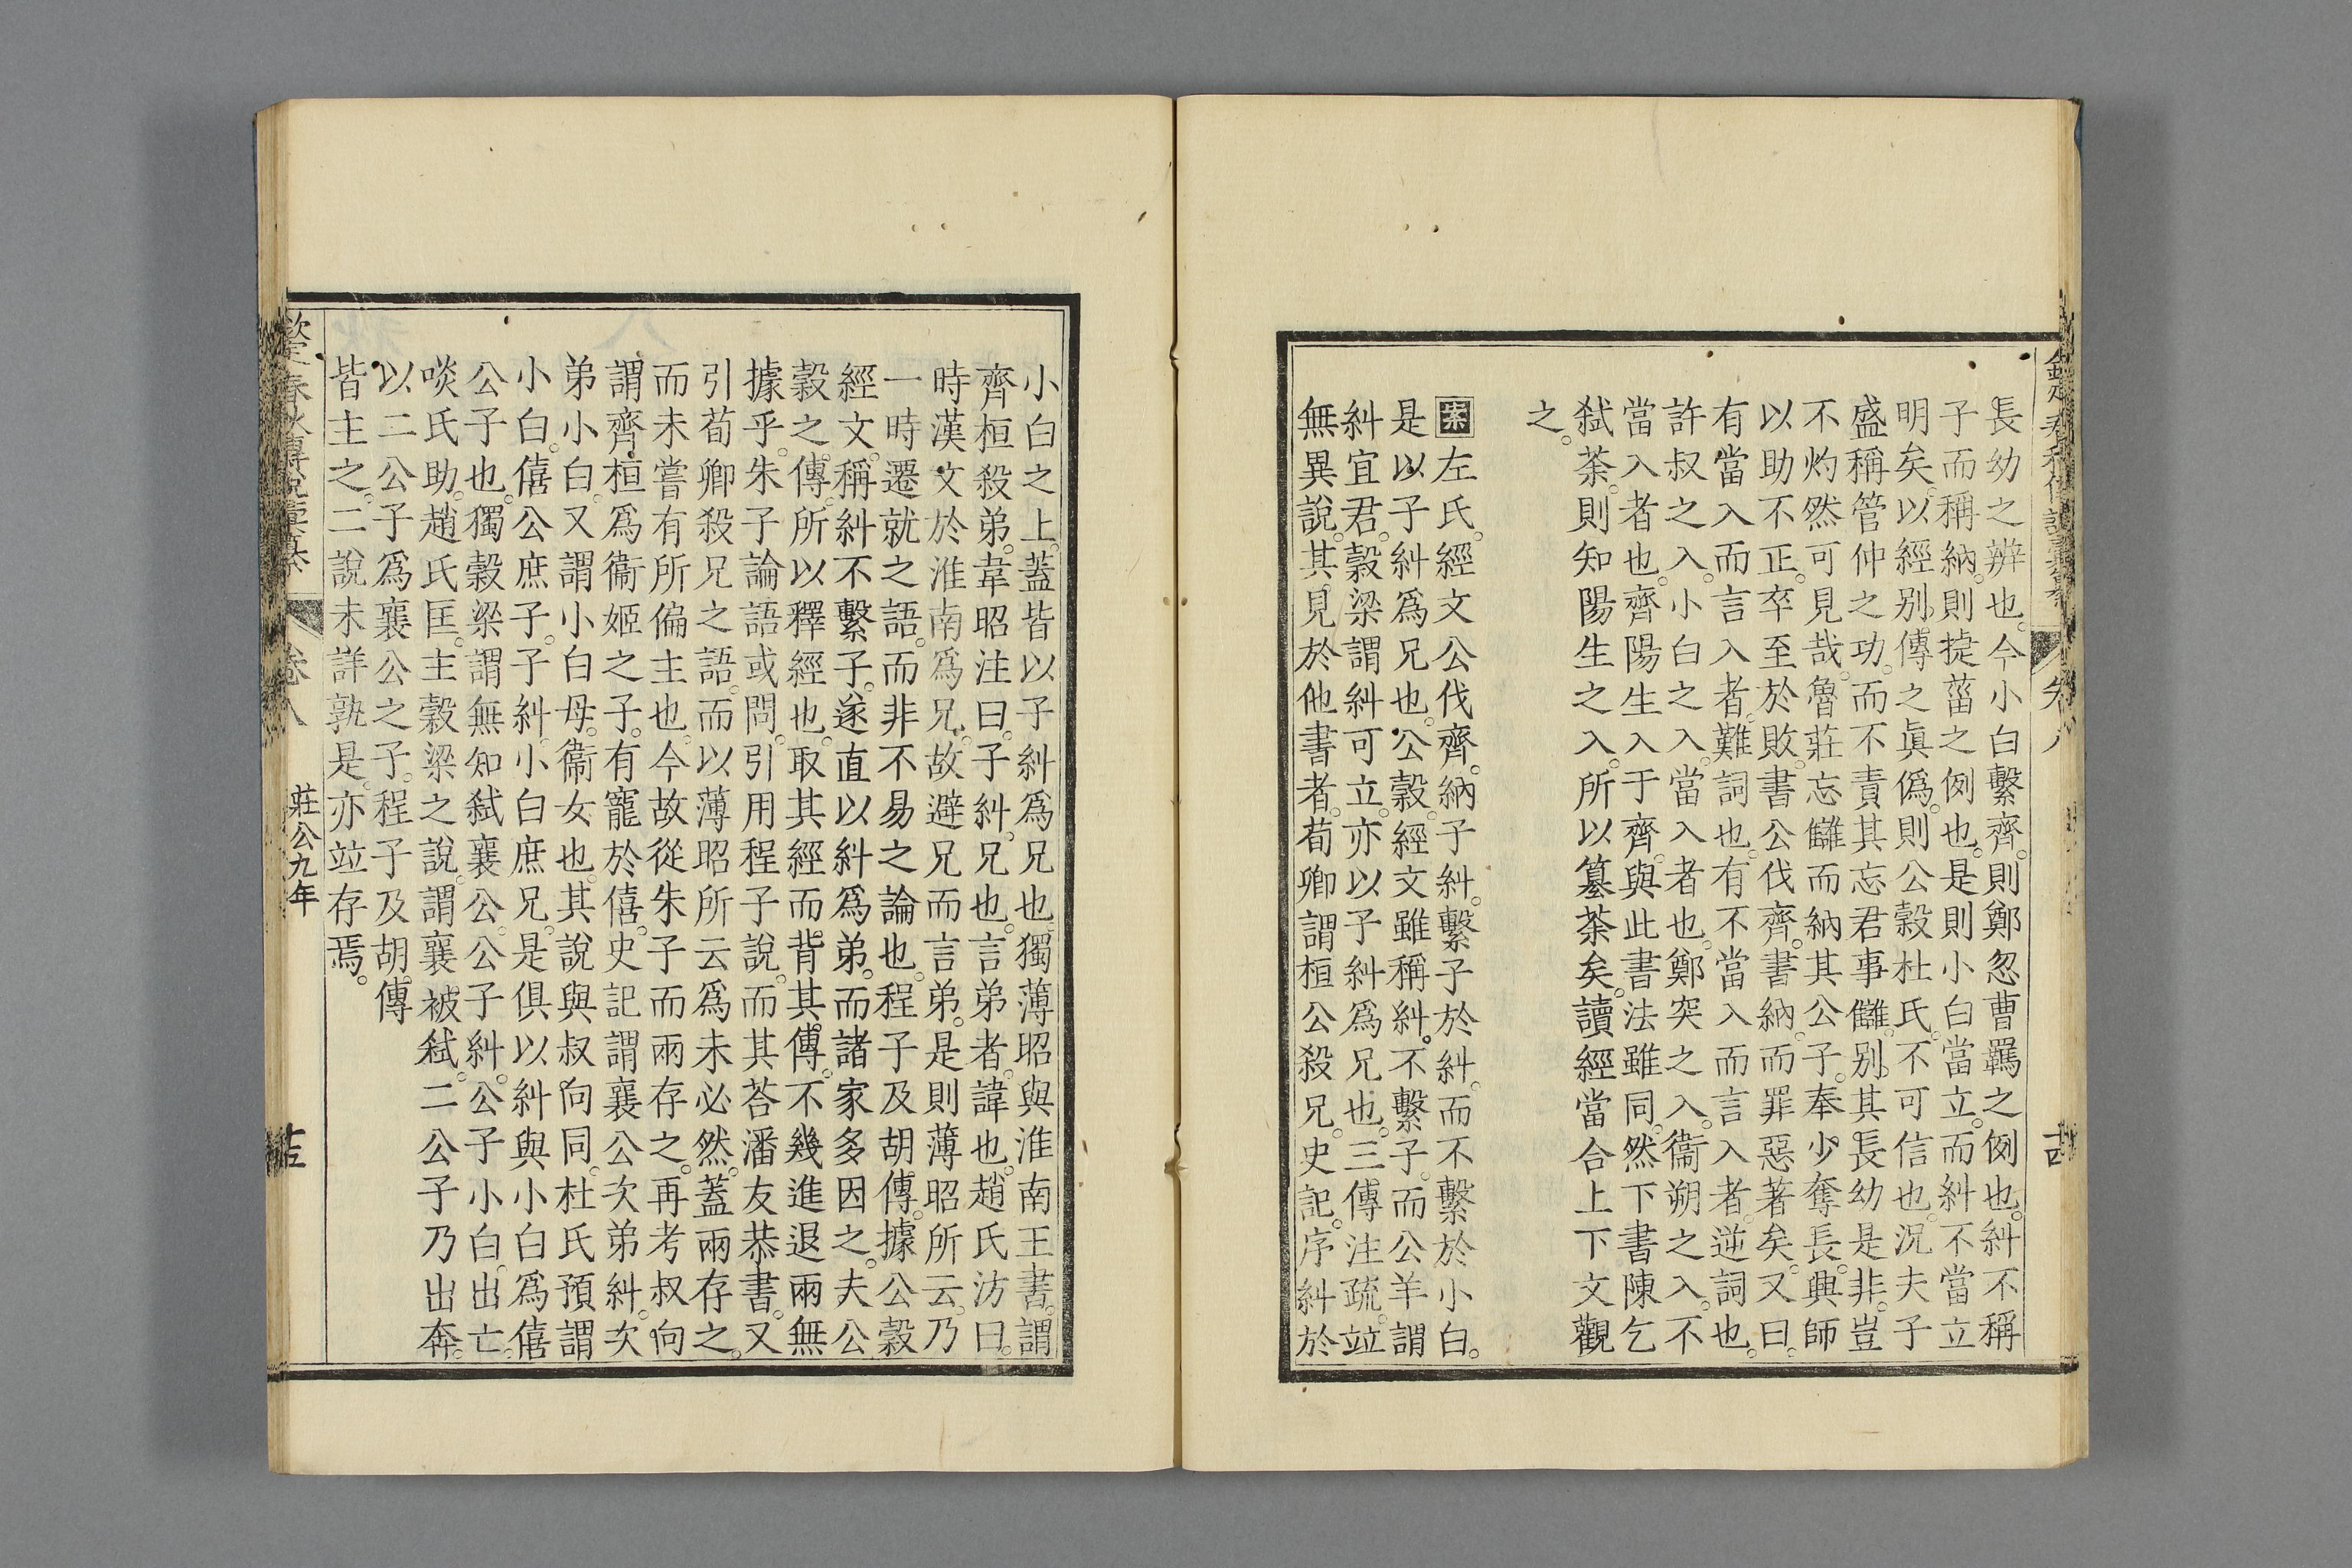 長幼之辨也。今小白繫齊。則鄭忽曹羈之例也。糾不稱
子而稱納。則捷菑之例也。是則小白當立。而糾不當立
明矣。以經別傳之眞僞。則公穀杜氏。不可信也。況夫子
盛稱管仲之功。而不責其忘君事讎。別其長幼是非。豈
不灼然可見哉。魯莊忘讎而納其公子。奉少奪長。興師
以助不正。卒至於敗。書公伐齊。書納。而罪惡著矣。又曰。
有當入而言入者。難詞也。有不當入而言入者。逆詞也。
許叔之入。小白之入。當入者也。鄭突之入。衞朔之入。不
當入者也。齊陽生入于齊。與此書法雖同。然下書陳乞
弑荼。則知陽生之入。所以篡荼矣。讀經當合上下文觀
之。
案左氏。經文公伐齊。納子糾。繫子於糾。而不繫於小白。
是以子糾爲兄也。公穀。經文雖稱糾。不繫子。而公羊謂
糾宜君。穀梁謂糾可立。亦以子糾爲兄也。三傳注疏。竝
無異說。其見於他書者。荀卿謂桓公殺兄。史記。序糾於
小白之上。蓋皆以子糾爲兄也。獨薄昭與淮南王書。謂
齊桓殺弟。韋昭注曰。子糾。兄也。言弟者。諱也。趙氏汸曰。
時漢文於淮南爲兄。故避兄而言弟。是則薄昭所云。乃
一時遷就之語。而非不易之論也。程子及胡傳。據公穀
經文。稱糾不繫子。遂直以糾爲弟。而諸家多因之。夫公
穀之傳。所以釋經也。取其經而背其傳。不幾進退兩無
據乎。朱子論語或問。引用程子說。而其荅潘友恭書。又
引荀卿殺兄之語。而以薄昭所云爲未必然。蓋兩存之。
而未嘗有所偏主也。今故從朱子而兩存之。再考叔向
謂齊桓爲衞姬之子。有寵於僖。史記謂襄公次弟糾。次
弟小白。又謂小白母。衞女也。其說與叔向同。杜氏預謂
小白。僖公庶子。子糾。小白庶兄。是俱以糾與小白爲僖
公子也。獨穀梁謂無知弑襄公。公子糾。公子小白。出亡。
啖氏助。趙氏匡。主穀梁之說。謂襄被弑。二公子乃出奔。
以二公子爲襄公之子。程子及胡傳
皆主之。二說未詳孰是。亦竝存焉。
欽定春秋傳說彙纂 卷八 莊公九年